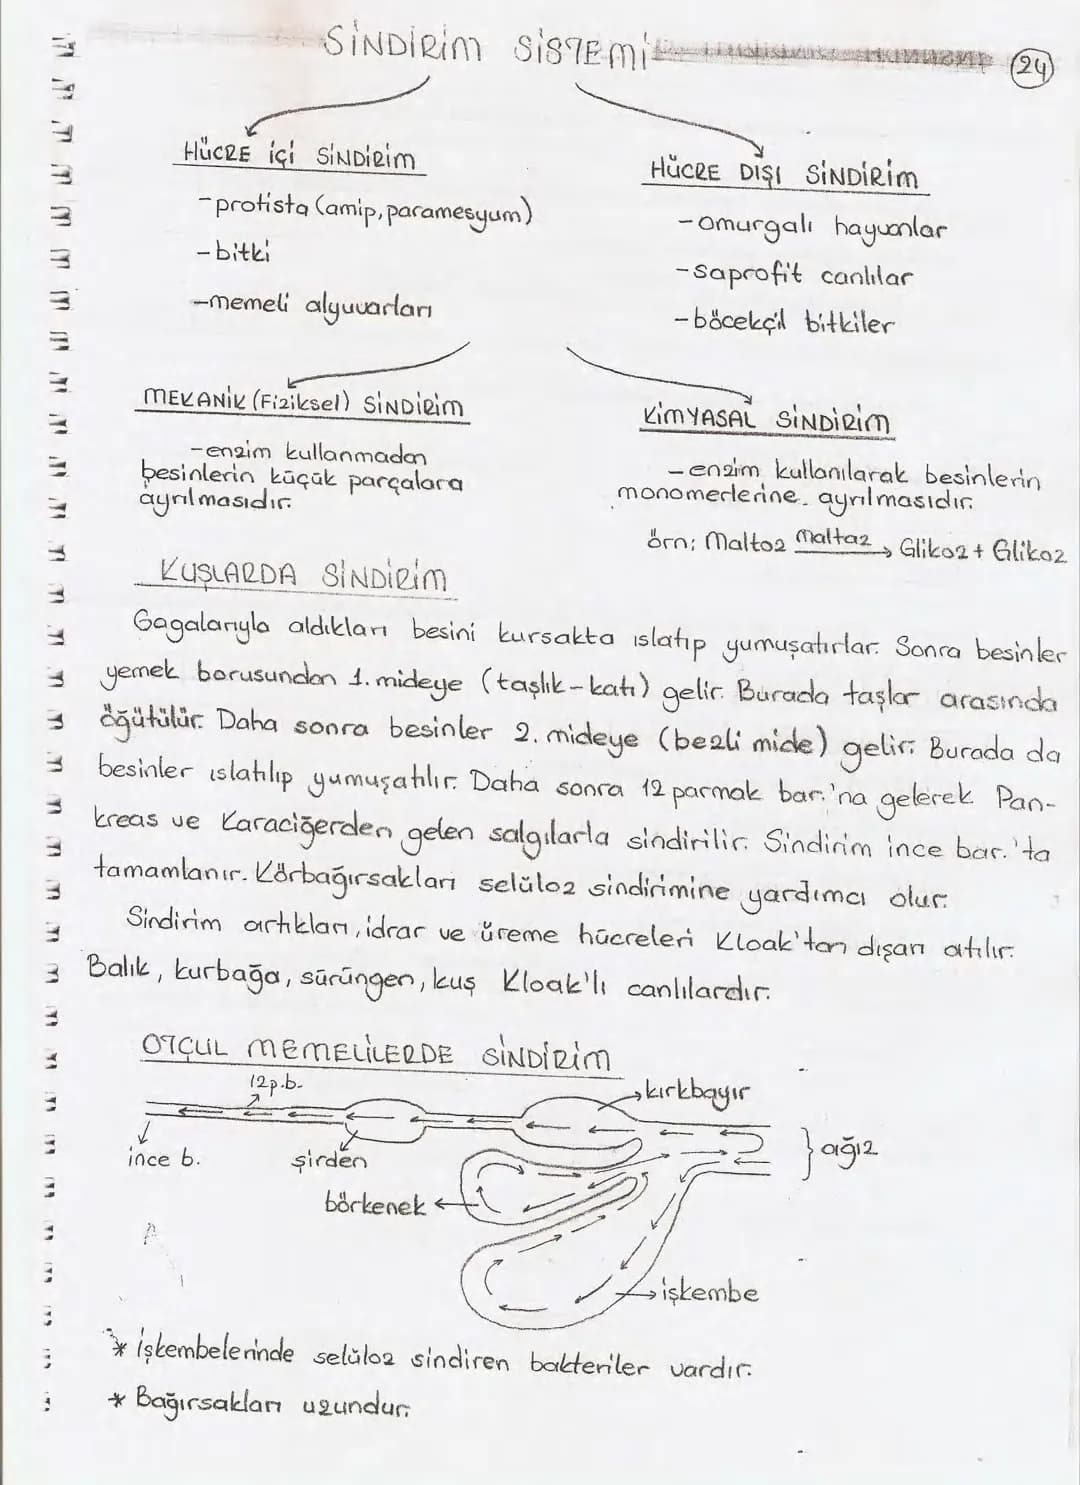 SİNDİRİM SİSTEMİ
24
HÜCRE içi SİNDİRİM
-protista (amip, paramesyum)
-bitki
-memeli alyuvarları
HÜCRE DIŞI SİNDİRİM
-omurgalı hayvanlar
-saprofit canlılar
-böcekçil bitkiler
MEKANİK (Fiziksel) SİNDİRİM
-enzim kullanmadan
besinlerin küçük parçalara
ayrılmasıdır.
KİMYASAL SİNDİRİM
-enzim kullanılarak besinlerin
monomerlerine ayrılmasıdır.
örn: Maltoz maltaz → Glikoz + Glikoz
KUŞLARDA SİNDİRİM
Gagalarıyla aldıkları besini kursakta ıslatıp yumuşatırlar. Sonra besinler
yemek borusundan 1. mideye (taşlık-katı) gelir. Burada taşlar arasında
öğütülür. Daha sonra besinler 2. mideye (bezli mide) gelir. Burada da
besinler ıslatılıp yumuşatılır. Daha sonra 12 parmak bar.'na gelerek Pan-
kreas ve Karaciğerden gelen salgılarla sindirilir. Sindirim ince bar.'ta
tamamlanır. Körbağırsakları selüloz sindirimine yardımcı olur.
Sindirim artıkları, idrar ve üreme hücreleri Kloak'tan dışarı atılır.
Balık, kurbağa, sürüngen, kuş Kloak'lı canlılardır.
OTÇUL MEMELİLERDE SİNDİRİM
12p.b.
kırkbayır
ağız
ince b.
şirden
börkenek
işkembe
* işkembelerinde selüloz sindiren bakteriler vardır.
* Bağırsakları uzundur.